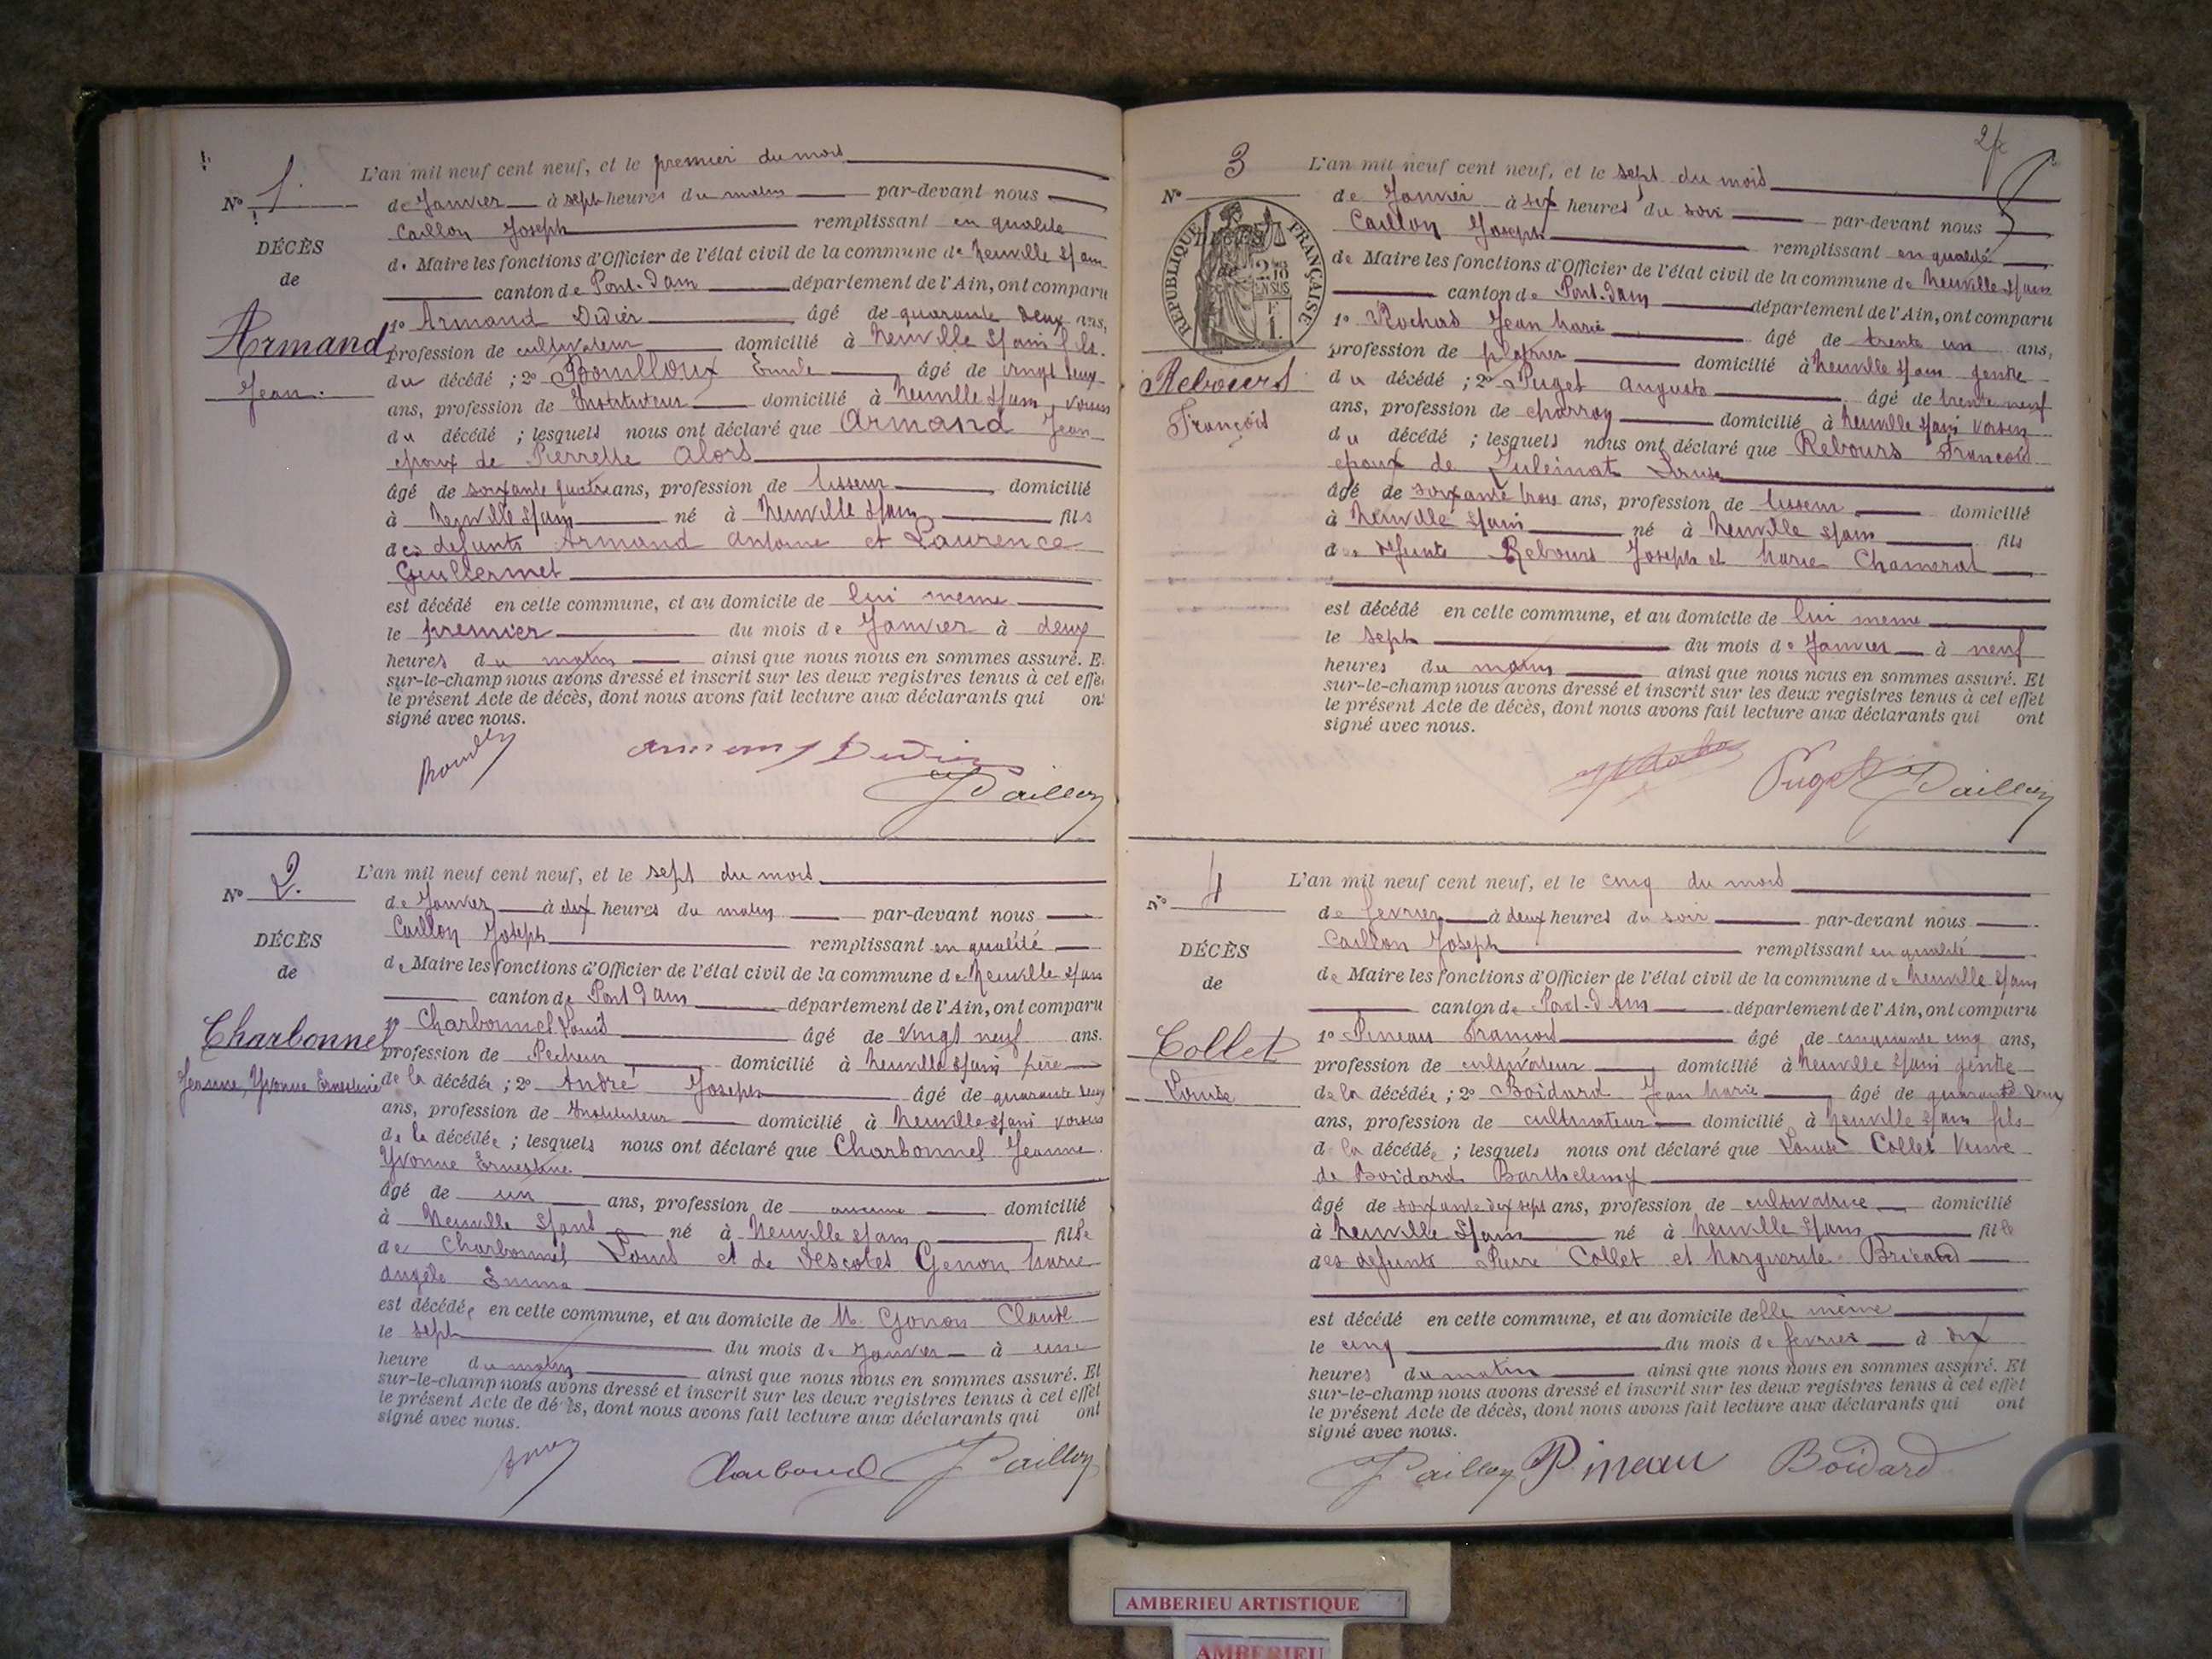 N° 1.
DÉCÈS
de
Armand
Jean.
L'an mil neuf cent neuf, et le premier du mois
de Janvier à sept heures du matin par-devant nous
Caillon Joseph remplissant en qualité
de Maire les fonctions d'Officier de l'état civil de la commune de Neuville s/ain
canton de Pont-d'ain département de l'Ain, ont comparu
1° Armand Didier âgé de quarante deux ans,
profession de cultivateur domicilié à Neuville s/ain fils
du décédé ; 2° Boulloux Emile âgé de vingt deux
ans, profession de Instituteur domicilié à Neuville s/ain, voisin
du décédé ; lesquels nous ont déclaré que Armand Jean
époux de Pierrette Alors
âgé de soixante quatre ans, profession de tisseur domicilié
à Neuville s/ain né à Neuville s/ain fils
des défunts Armand Antoine et Laurence
Guillermet
est décédé en cette commune, et au domicile de lui meme
le premier du mois de Janvier à deux
heures du matin ainsi que nous nous en sommes assuré. E
sur-le-champ nous avons dressé et inscrit sur les deux registres tenus à cet effe
le présent Acte de décès, dont nous avons fait lecture aux déclarants qui on
signé avec nous.
Armand Didier
J Caillon
N° 2.
DÉCÈS
de
Charbonnel
Jeanne, Yvonne Ernestine
L'an mil neuf cent neuf, et le sept du mois
de Janvier à dix heures du matin par-devant nous
Caillon Joseph remplissant en qualité
de Maire les fonctions d'Officier de l'état civil de la commune de Neuville s/ain
canton de Pont d'ain département de l'Ain, ont comparu
1° Charbonnel Louis âgé de vingt neuf ans.
profession de Pecheur domicilié à Neuville s/ain père
de la décédée ; 2° André Joseph âgé de quarante deux
ans, profession de Instituteur domicilié à Neuville s/ain voisin
de la décédée ; lesquels nous ont déclaré que Charbonnel Jeanne
Yvonne Ernestine
âgé de un ans, profession de aucune domicilié
à Neuville s/ain né à Neuville s/ain fille
de Charbonnel Louis et de Descotes Genon Marie
Angèle Emma
est décédée en cette commune, et au domicile de M. Gonon Claude
le sept du mois de Janvier à une
heure du matin ainsi que nous nous en sommes assuré. Et
sur-le-champ nous avons dressé et inscrit sur les deux registres tenus à cet effet
le présent Acte de décès, dont nous avons fait lecture aux déclarants qui ont
signé avec nous.
Charbonnel J Caillon
2
N° 3
RÉPUBLIQUE FRANÇAISE
DÉCÈS
de
Rebours
François
L'an mil neuf cent neuf, et le sept du mois
de Janvier à six heures du soir par-devant nous
Caillon Joseph remplissant en qualité
de Maire les fonctions d'Officier de l'état civil de la commune de Neuville s/ain
canton de Pont-d'ain département de l'Ain, ont comparu
1° Rochas Jean Marie âgé de trente un ans,
profession de platrier domicilié à Neuville s/ain gendre
du décédé ; 2° Puget Auguste âgé de trente neuf
ans, profession de charron domicilié à Neuville s/ain voisin
du décédé ; lesquels nous ont déclaré que Rebours François
époux de Louise
âgé de soixante trois ans, profession de tisseur domicilié
à Neuville s/ain né à Neuville s/ain fils
des défunts Rebours Joseph et Marie Chamerat
est décédé en cette commune, et au domicile de lui meme
le sept du mois de Janvier à neuf
heures du matin ainsi que nous nous en sommes assuré. Et
sur-le-champ nous avons dressé et inscrit sur les deux registres tenus à cet effet
le présent Acte de décès, dont nous avons fait lecture aux déclarants qui ont
signé avec nous.
Puget J Caillon
N° 4
DÉCÈS
de
Collet
Louise
L'an mil neuf cent neuf, et le cinq du mois
de fevrier à deux heures du soir par-devant nous
Caillon Joseph remplissant en qualité
de Maire les fonctions d'Officier de l'état civil de la commune de Neuville s/ain
canton de Pont-d'Ain département de l'Ain, ont comparu
1° Pineau François âgé de cinquante cinq ans,
profession de cultivateur domicilié à Neuville s/ain gendre
de la décédée ; 2° Boidard Jean Marie âgé de quarante deux
ans, profession de cultivateur domicilié à Neuville s/ain fils
de la décédée ; lesquels nous ont déclaré que Louise Collet Veuve
de Boidard Barthelemy
âgé de soixante dix sept ans, profession de cultivatrice domicilié
à Neuville s/ain né à Neuville s/ain fille
des défunts Pierre Collet et Marguerite
est décédé en cette commune, et au domicile delle même
le cinq du mois de fevrier à dix
heures du matin ainsi que nous nous en sommes assuré. Et
sur-le-champ nous avons dressé et inscrit sur les deux registres tenus à cet effet
le présent Acte de décès, dont nous avons fait lecture aux déclarants qui ont
signé avec nous.
J Caillon Pineau Boidard
AMBERIEU ARTISTIQUE
AMBERIEU